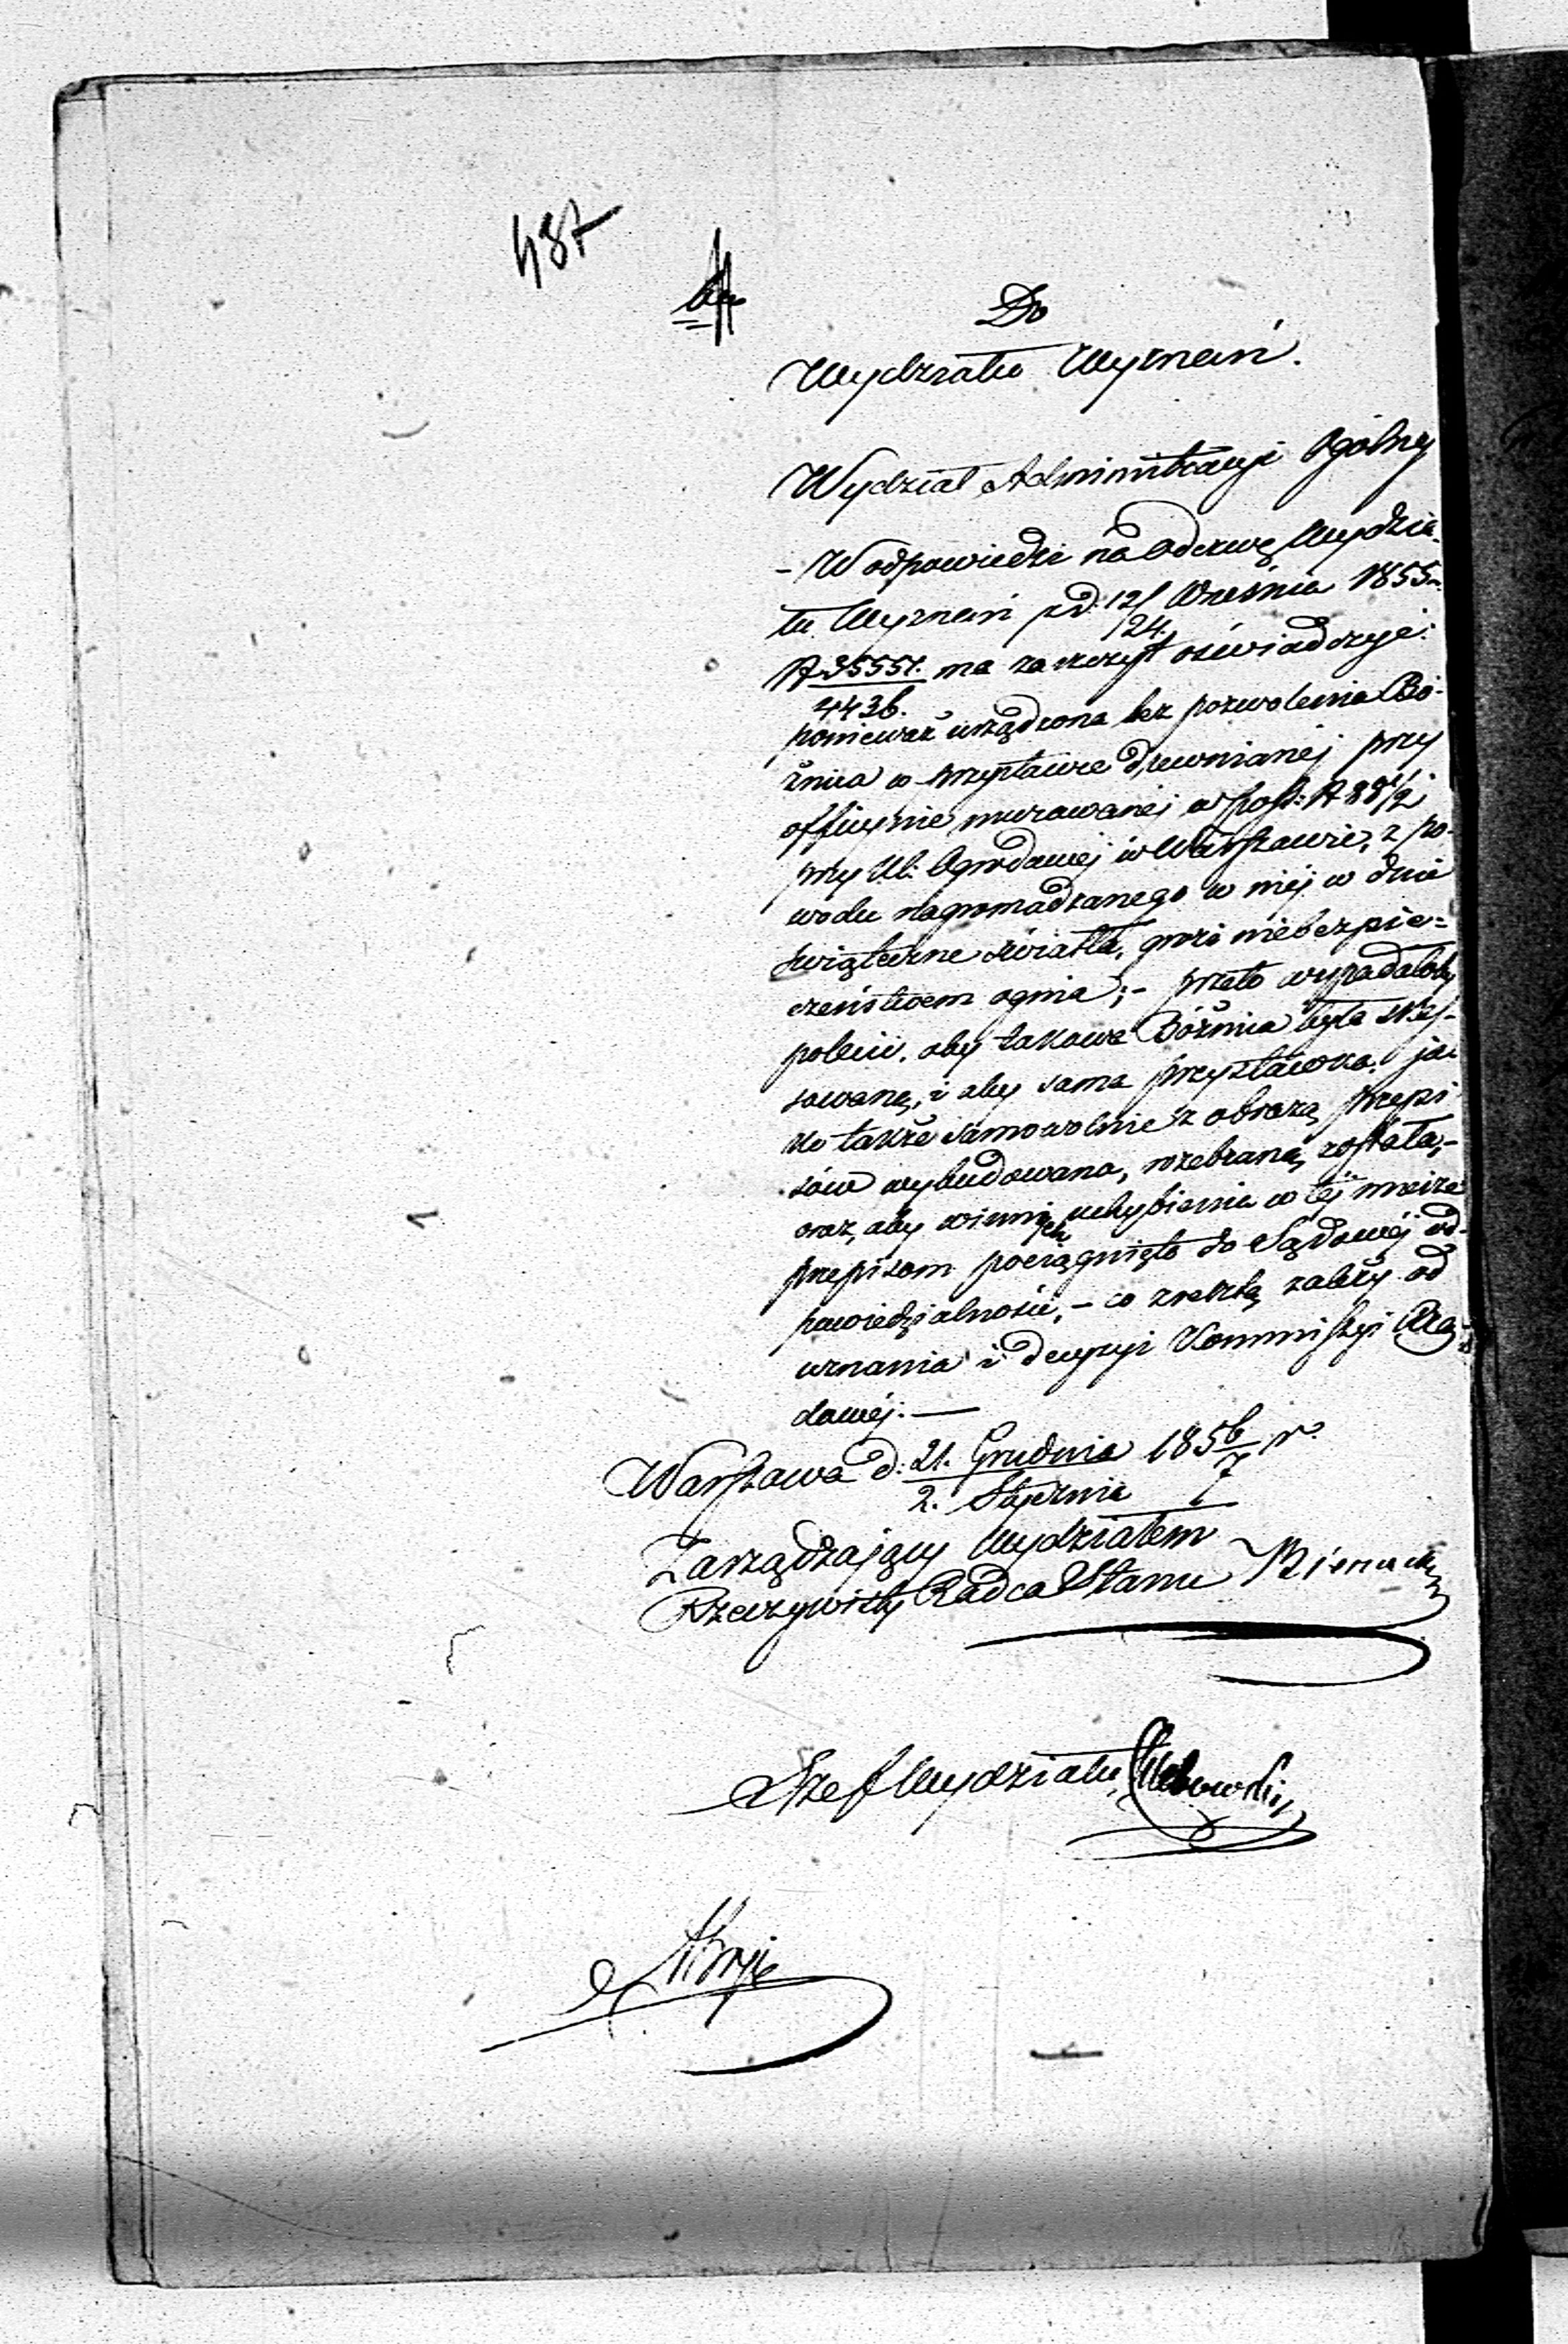 487
Do
Wydziału Wyznań.
Wydział Administracyi Ogólnéy
– W odpowiedzi na Odezwę Wydzia-
łu Wyznań z d: 12/24. Września 1855 r.
N 35551./4436. ma zaszczyt oświadczyć:
ponieważ urządzona bez pozwolenia Bó-
żnica w przystawce drewnianéj przy
officynie murowanéj w poss: N 88 1/2
przy Ul: Ogrodowéj w Warszawie, z po-
wodu nagromadzanego w niéj w dnie
świąteczne światła, grozi niebezpie=
czeństwem ognia; – przeto wypadałoby
polecić, aby takowa Bóżnica była skas-
sowaną, i aby sama przystawka, ja-
ko także samowolnie z obrazą przepi-
sów wybudowana, rozebraną została, –
oraz, aby winnych uchybienia w téj mierze
przepisom pociągnięto do Sądowéj od-
powiedzialności, – co zresztą zależy od
uznania i decyzyi Kommissyi Rzą-
dowéj. —
Warszawa d: 21. Grudnia / 2. Stycznia 1856/7 r.
Zarządzający Wydziałem
Rzeczywisty Radca Stanu
Szef Wydziału,